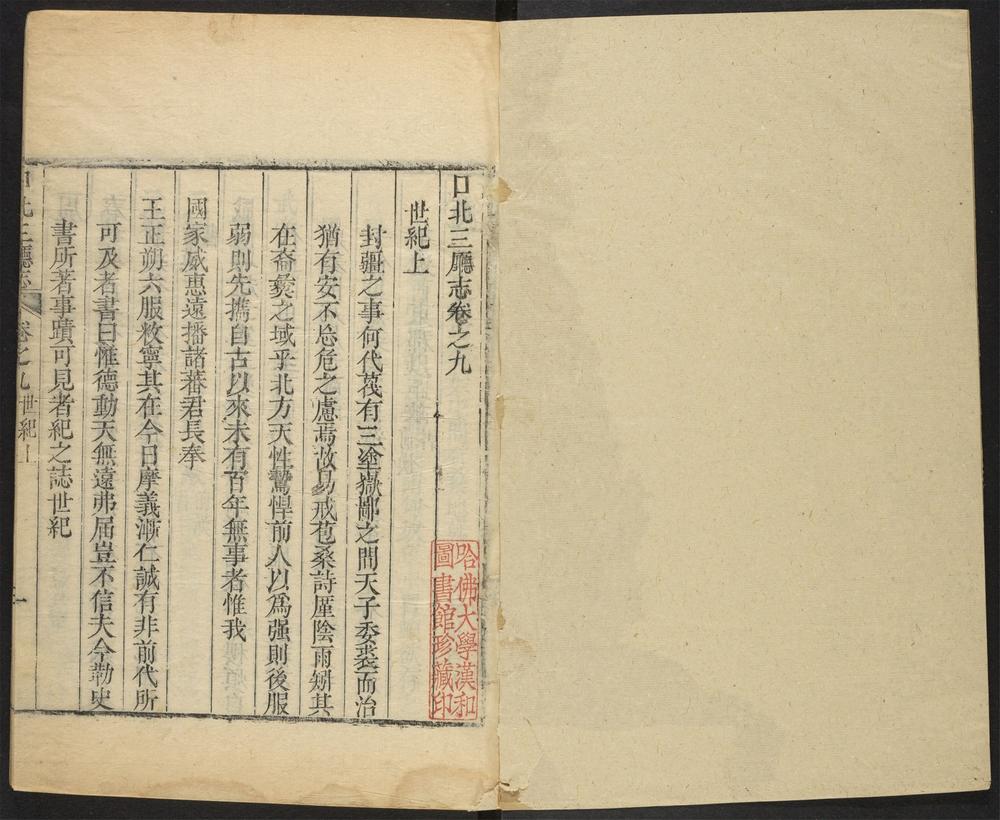 口北三廳志卷之九
世紀上
封疆之事何代蔑有三塗嶽鄙之間天子委裘而治
猶有安不忘危之慮焉故易戒苞桑詩厪陰雨矧其
在裔彝之域乎北方天性鷙悍前人以爲强則後服
弱則先攜自古以來未有百年無事者惟我
國家威惠遠播諸蕃君長奉
王正朔六服敉寧其在今日摩義漸仁誠有非前代所
可及者書曰惟德動天無遠弗届豈不信夫今勒史
書所著事蹟可見者紀之誌世紀
口北三廳志
卷之九世紀上
一
哈佛大學漢和
圖書館珍藏印